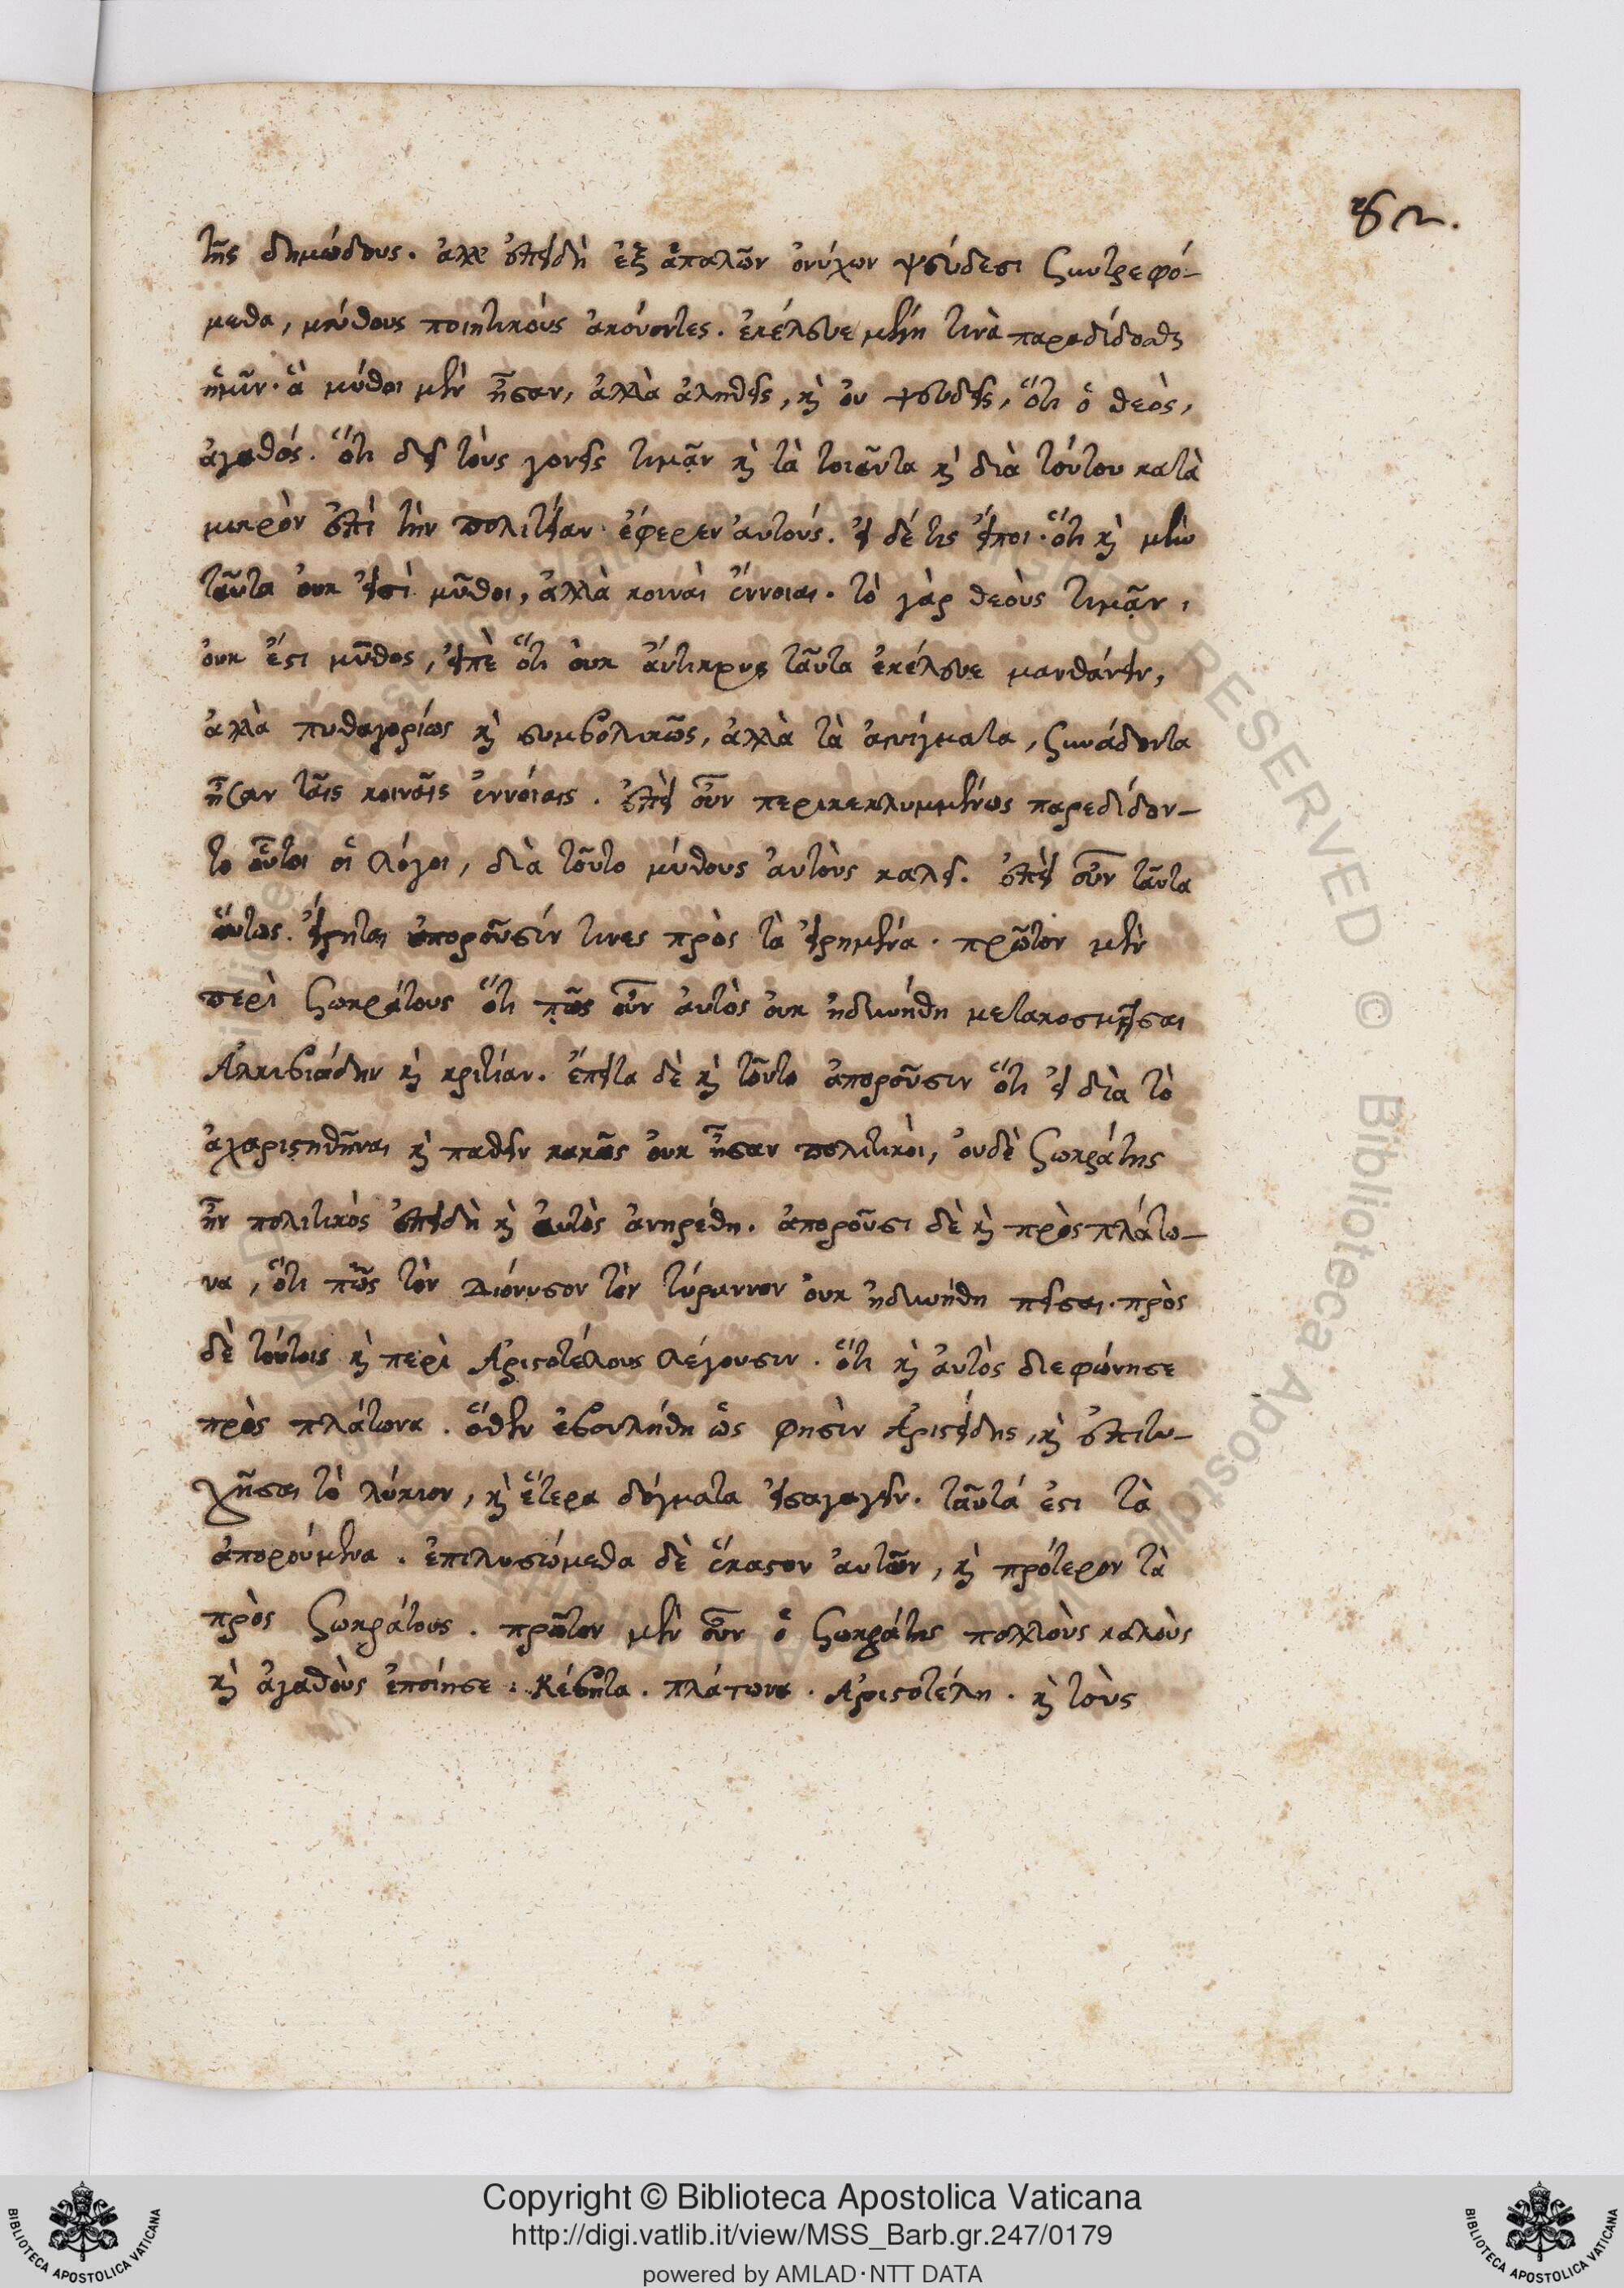 82.
τῆς δημώδους. ἀλλ' ἐπειδὴ ἐξ ἁπαλῶν ὀνύχων ψεύδεσι συντρεφό-
μεθα, μύθους ποιητικοὺς ἀκούοντες. ἐκέλευε μὲν τινὰ παραδίδοσθαι
ἡμῖν. ἃ μύθοι μὲν ἦσαν, ἀλλὰ ἀληθεῖς, καὶ οὐ ψευδεῖς, ὅτι ὁ θεὸς,
ἀγαθός. ὅτι δεῖ τοὺς γονεῖς τιμᾶν καὶ τὰ τοιαῦτα καὶ διὰ τούτου κατὰ
μικρὸν ἐπὶ τὴν πολιτείαν ἔφερεν αὐτούς. εἰ δέ τις εἴποι. ὅτι καὶ μὴν
ταῦτα οὐκ εἰσὶ μῦθοι, ἀλλὰ κοιναὶ ἔννοιαι. τὸ γὰρ θεοὺς τιμᾶν,
οὐκ ἔστι μῦθος, εἰπὲ ὅτι οὐκ ἄντικρυς ταῦτα ἐκέλευε μανθάνειν,
ἀλλὰ πυθαγορίως καὶ συμβολικῶς, ἀλλὰ τὰ αἰνίγματα, συνάδοντα
ἦσαν ταῖς κοιναῖς ἐννοίαις. ἐπεὶ οὖν περικεκλυμμένως παρεδίδον-
το οὗτοι οἱ λόγοι, διὰ τοῦτο μύθους αὐτοὺς καλεῖ. ἐπεὶ οὖν ταῦτα
οὕτως. εἴρηται ἀποροῦσίν τινες πρὸς τὰ εἰρημένα. πρῶτον μὲν
περὶ Σωκράτους ὅτι πῶς οὖν αὐτὸς οὐκ ἠδυνήθη μετακοσμῆσαι
Ἀλκιβιάδην καὶ κριτίαν. ἔπειτα δὲ καὶ τοῦτο ἀποροῦσιν ὅτι εἰ διὰ τὸ
ἀχαριστηθῆναι καὶ παθεῖν κακῶς οὐκ ἦσαν πολιτικοὶ, οὐδὲ Σωκράτης
ἦν πολιτικὸς ἐπειδὴ καὶ αὐτὸς ἀνῃρέθη. ἀποροῦσι δὲ καὶ πρὸς πλάτω-
να, ὅτι πῶς τὸν Διόνυσον τὸν τύραννον οὐκ ἠδυνήθη πεῖσαι. πρὸς
δὲ τούτοις καὶ περὶ Ἀριστοτέλους λέγουσιν. ὅτι καὶ αὐτὸς διεφώνησε
πρὸς πλάτωνα. ὅθεν ἐβουλήθη ὥς φησὶν Ἀριστείδης, καὶ ἐπιτυ-
χῆσαι τὸ λύκιον, καὶ ἕτερα δόγματα εἰσαγαγεῖν. ταῦτά ἐστι τὰ
ἀπορούμενα. ἐπιλυσώμεθα δὲ ἕκαστον αὐτῶν, καὶ πρότερον τὰ
πρὸς Σωκράτους. πρῶτον μὲν οὖν ὁ Σωκράτης πολλοὺς καλοὺς
καὶ ἀγαθοὺς ἐποίησε. Κέβητα. πλάτωνα. Ἀριστοτέλη. καὶ τοὺς
Copyright © Biblioteca Apostolica Vaticana
http://digi.vatlib.it/view/MSS_Barb.gr.247/0179
powered by AMLAD·NTT DATA
BIBLIOTECA APOSTOLICA VATICANA
BIBLIOTECA APOSTOLICA VATICANA